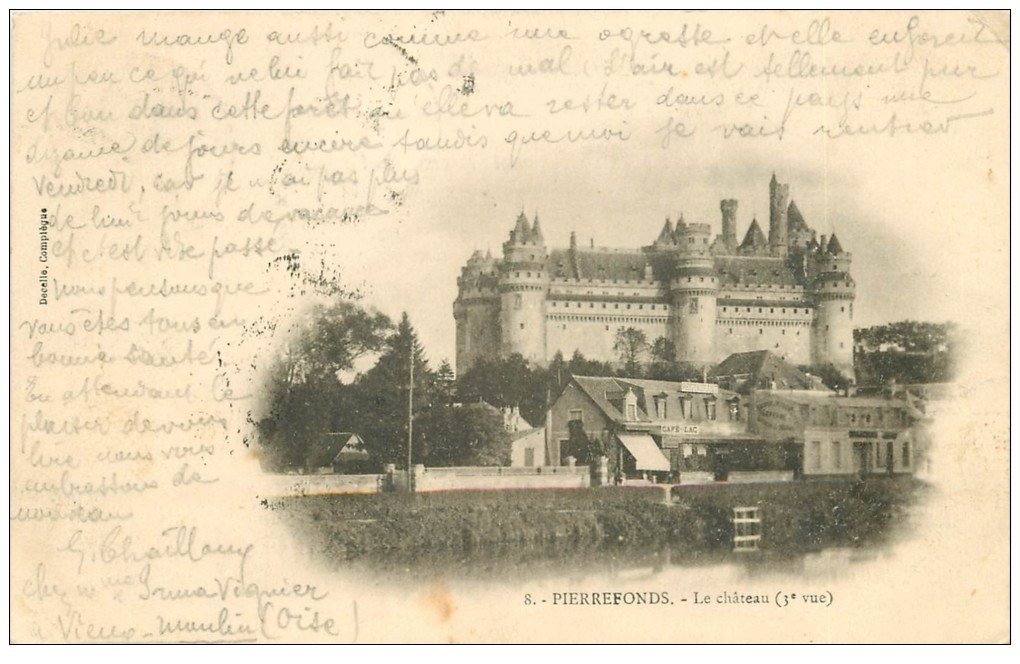 Julie mange aussi comme une ogresse et elle enforcit
un peu ce qui ne lui fait pas de mal. L'air est tellement pur
et bon dans cette forêt qu'elle va rester dans ce pays une
dizaine de jours encore tandis que moi je vais rentrer
vendredi, car je n'ai pas plus
de huit jours de vacance
et c'est vite passé.
nous pensons que
vous êtes tous en
bonne santé.
En attendant le
plaisir de vous
lire nous vous
embrassons de
nouveau
G. Chaillouy
chez mme Irma Vignier
à Vieux-Moulin (Oise)
Decelle, Compiègne
CAFÉ DU LAC
8. - PIERREFONDS. - Le château (3e vue)